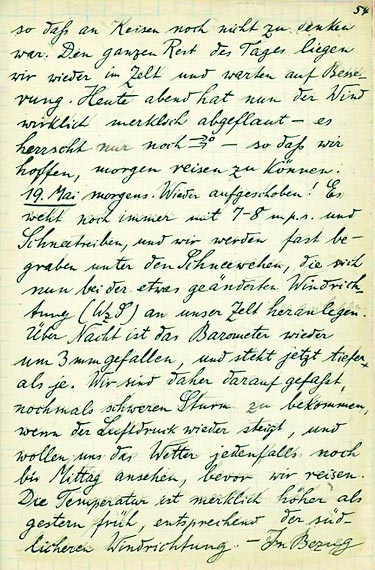 54
so daß an Reisen noch nicht zu denken
war. Den ganzen Rest des Tages liegen
wir wieder im Zelt und warten auf Besse-
rung. Heute abend hat nun der Wind
wirklich merklich abgeflaut – es
herrscht nur noch – so daß wir
hoffen, morgen reisen zu können.
19. Mai morgens. Wieder aufgeschoben! Es
weht noch immer mit 7-8 m.p.s. und
Schneetreiben, und wir werden fast be-
graben unter den Schneewehen, die sich
nun bei der etwas geänderten Windrich-
tung (WzS) an unser Zelt heranlegen.
Über Nacht ist das Barometer wieder
um 3 mm gefallen, und steht jetzt tiefer
als je. Wir sind daher darauf gefaßt,
nochmals schweren Sturm zu bekommen,
wenn der Luftdruck wieder steigt, und
wollen uns das Wetter jedenfalls noch
bis Mittag ansehen, bevor wir reisen.
Die Temperatur ist merklich höher als
gestern früh, entsprechend der süd-
licheren Windrichtung. – In Bezug